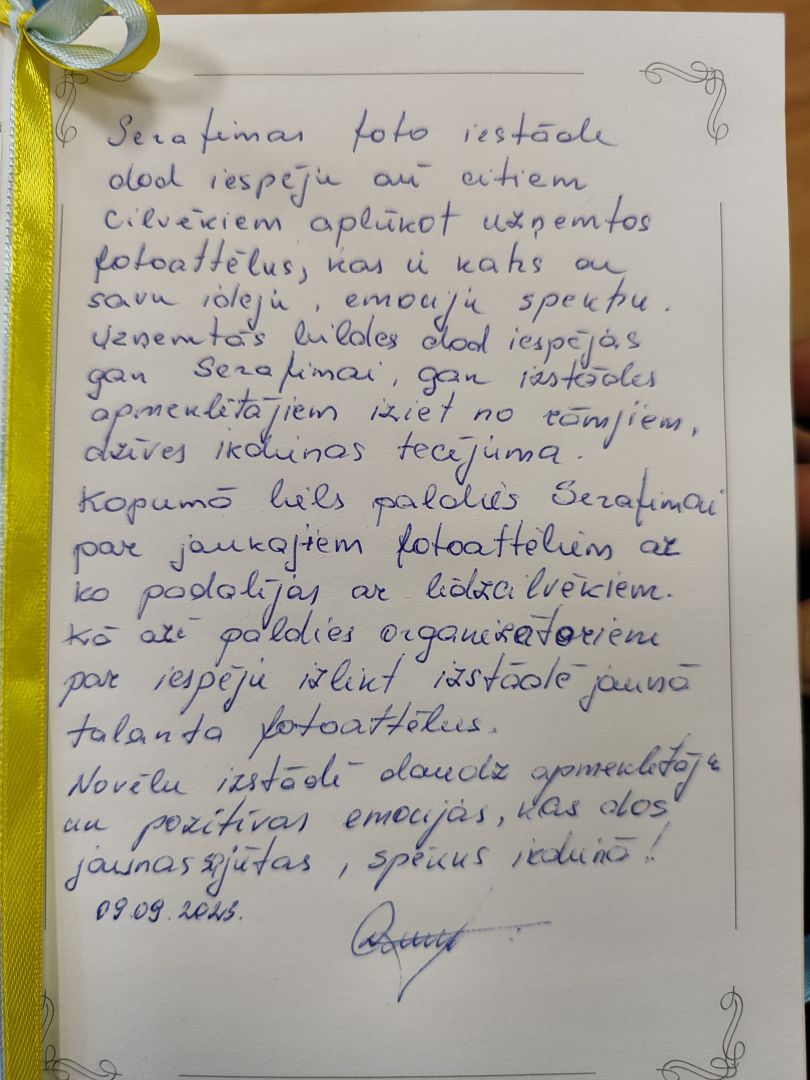 Serafimas foto iestāde
dod iespēju arī citiem
cilvēkiem aplūkot uzņemtos
fotoattēlus, kas ir katrs ar
savu ideju, emociju spektru.
Uzņemtās bildes dod iespējas
gan Serafimai, gan izstādes
apmeklētājiem iziet no rāmjiem,
dzīves ikdienas tecējuma.
Kopumā liels paldies Serafimai
par jaukajiem fotoattēliem ar
ko padalījās ar līdzcilvēkiem.
Kā arī paldies organizatoriem
par iespēju izlikt izstādē jaunā
talanta fotoattēlus.
Novēlu izstādē daudz apmeklētāju
un pozitīvas emocijas, kas dos
jaunas sajūtas, spēkus ikdienā!
09.09.2023.